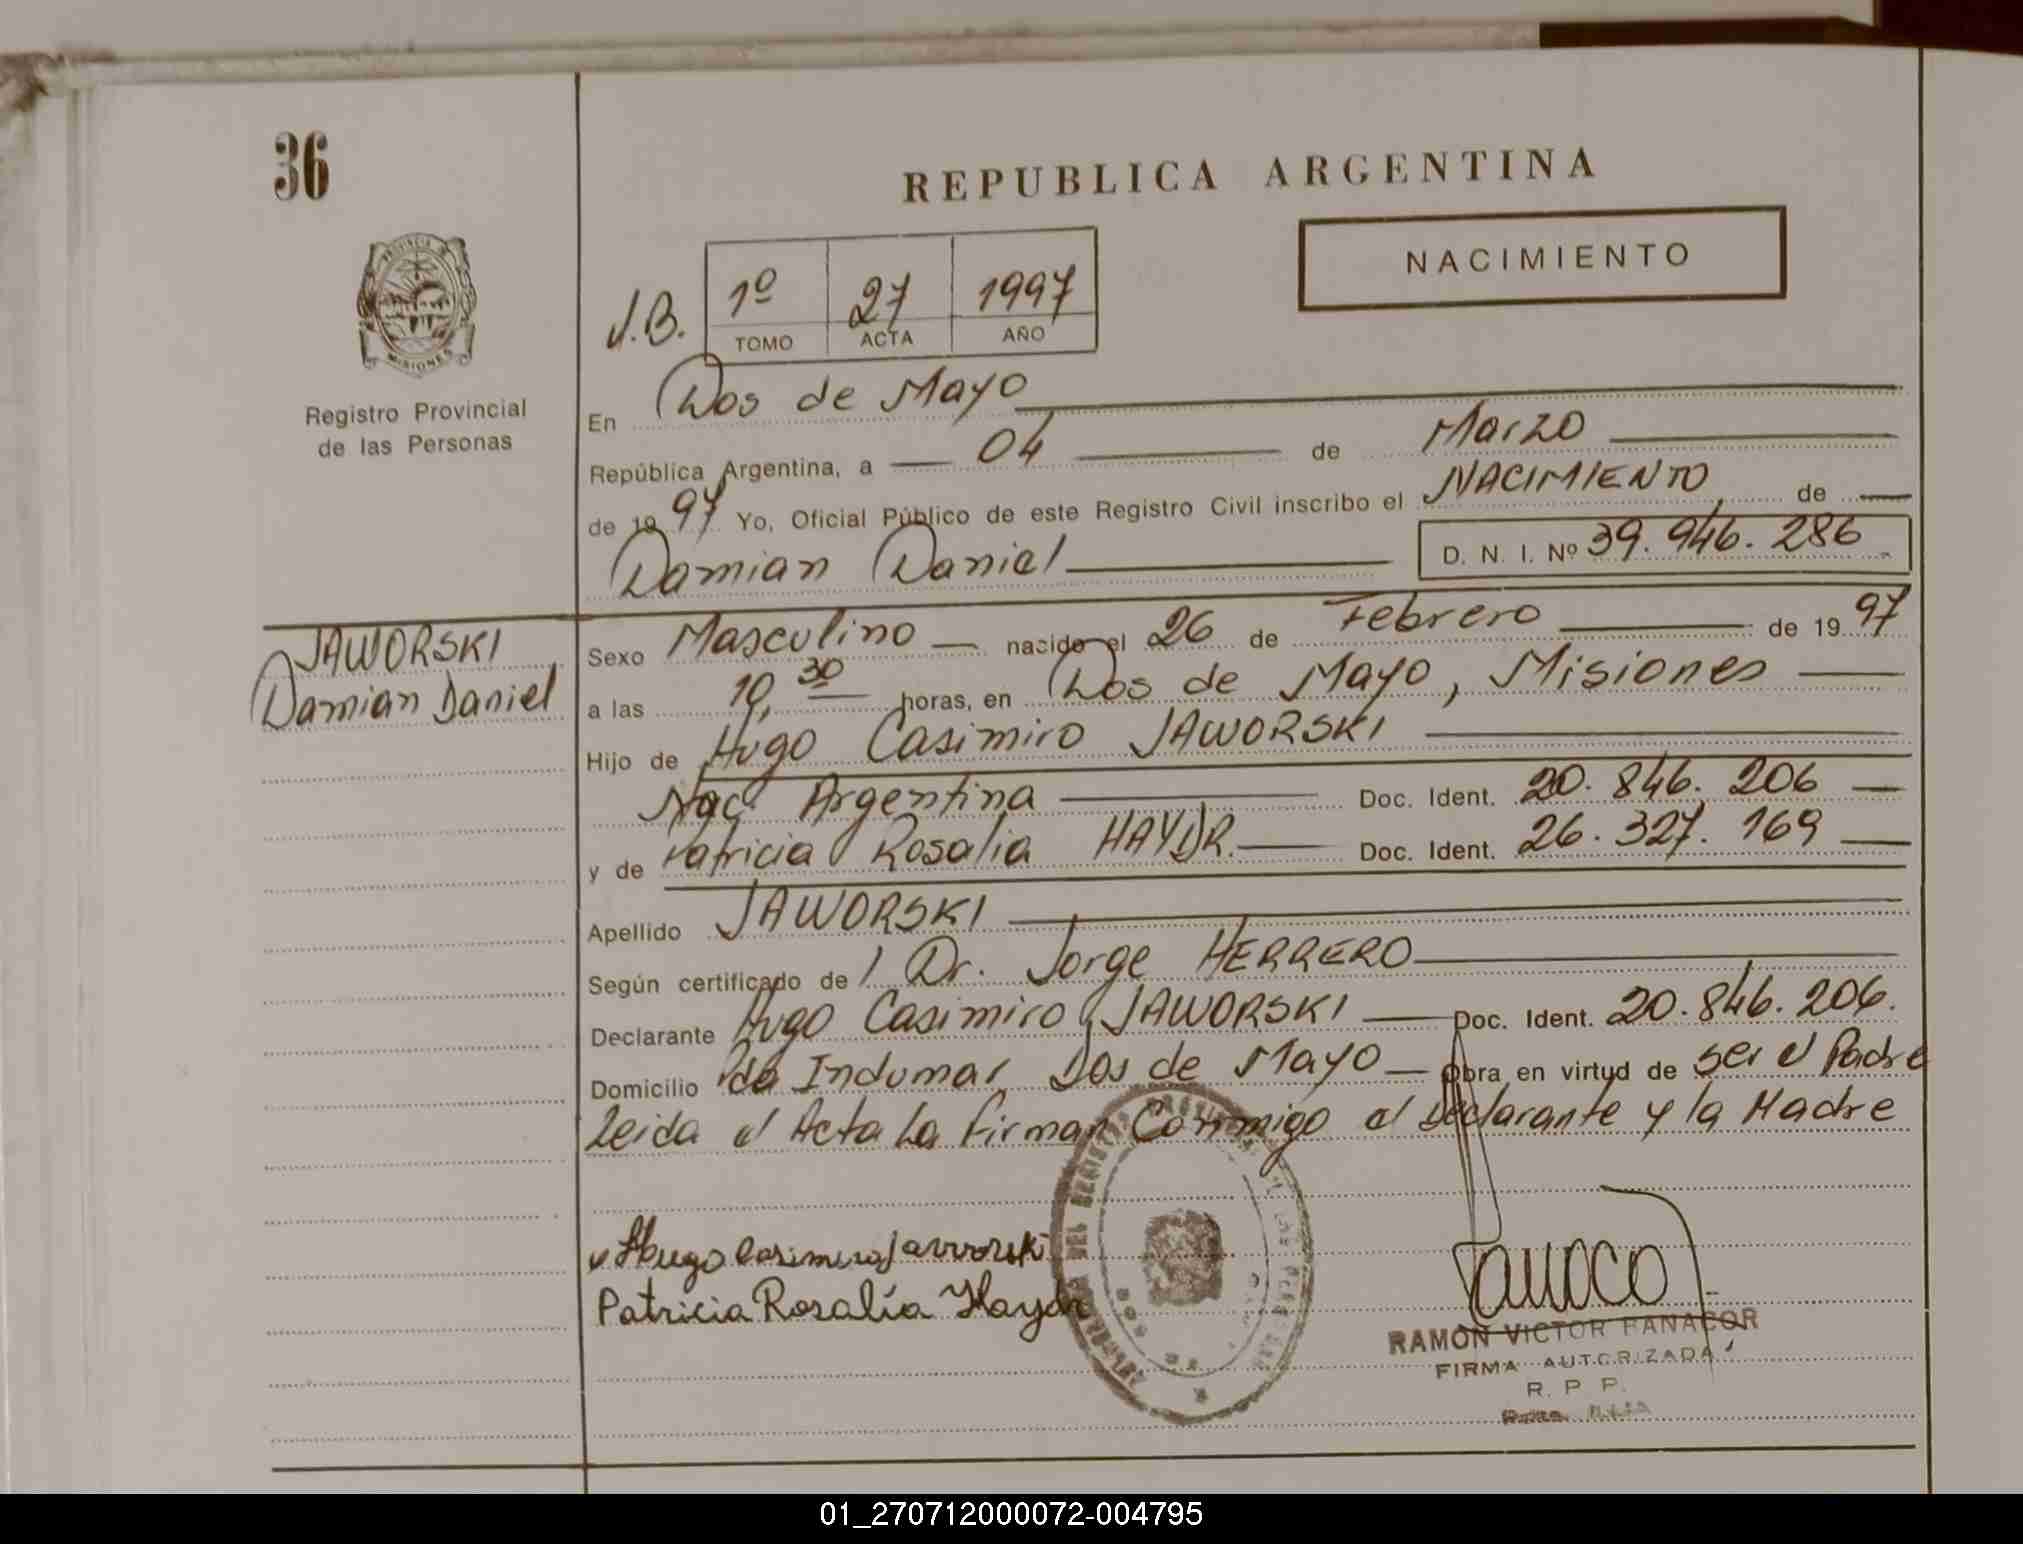 36
REPUBLICA ARGENTINA
NACIMIENTO
PROVINCIA DE
MISIONES
Registro Provincial
de las Personas
J.B.
1º 27 1997
TOMO ACTA AÑO
En Dos de Mayo
República Argentina, a 04 de Marzo
de 1997 Yo, Oficial Público de este Registro Civil inscribo el NACIMIENTO, de
Damian Daniel D. N. I. Nº 39.946.286
JAWORSKI
Damian Daniel
Sexo Masculino nacido el 26 de Febrero de 1997
a las 10,30 horas, en Dos de Mayo, Misiones
Hijo de Hugo Casimiro JAWORSKI
Nac. Argentina Doc. Ident. 20.846.206
y de Patricia Rosalia HAYDR. Doc. Ident. 26.327.169
Apellido JAWORSKI
Según certificado de Dr. Jorge HERRERO
Declarante Hugo Casimiro JAWORSKI Doc. Ident. 20.846.206.
Domicilio Indumar Dos de Mayo Obra en virtud de ser el Padre
Leida el Acta La firman Conmigo el Declarante y la Madre
Hugo Casimiro Jaworski
Patricia Rosalía Haydr
RAMON VICTOR FANACOR
FIRMA AUTORIZADA
R. P. P.
01_270712000072-004795